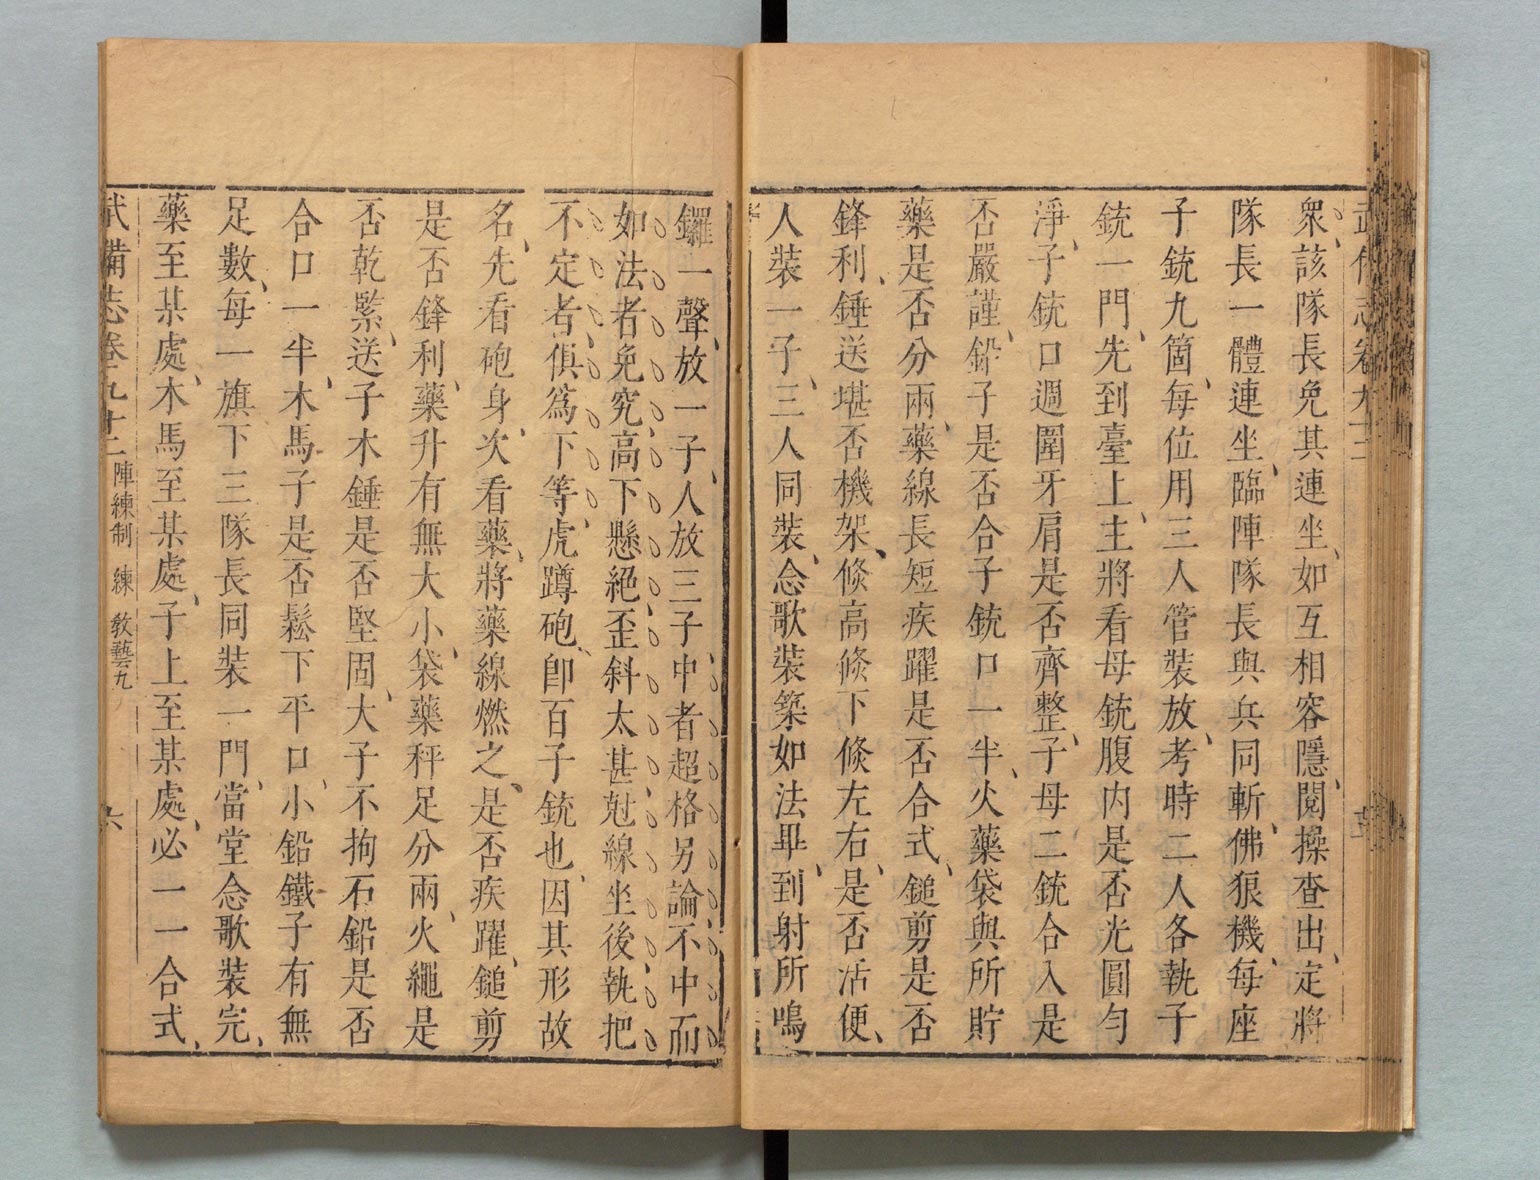 武備志卷九十二
衆、該隊長免其連坐、如互相容隱、閱操查出、定將
隊長一體連坐、臨陣隊長與兵同斬、佛狼機、每座
子銃九箇、每位用三人管裝放、考時二人各執子
銃一門、先到臺上、主將看母銃腹内是否光圓勻
淨、子銃口週圍牙肩是否齊整、子母二銃合入是
否嚴謹、鉛子是否合子銃口一半、火藥袋與所貯
藥是否分兩、藥線長短疾躍是否合式、鎚剪是否
鋒利、錘送堪否、機架、倐高倐下倐左右、是否活便、
人裝一子、三人同裝、念歌裝築如法畢、到射所鳴
鑼一聲、放一子、人放三子中者超格另論、不中而
如法者免究、高下懸絕、歪斜太甚、尅線坐後、執把
不定者、俱爲下等、虎蹲砲、卽百子銃也、因其形故
名、先看砲身、次看藥、將藥線燃之、是否疾躍、鎚剪
是否鋒利、藥升有無大小、袋藥秤足分兩、火繩是
否乾緊、送子木錘是否堅固、大子不拘石鉛是否
合口一半、木馬子是否鬆下平口、小鉛鐵子有無
足數、每一旗下三隊長同裝一門、當堂念歌裝完、
藥至某處、木馬至某處、子上至某處、必一一合式、
武備志卷九十二 陣練制 練 教藝九 六